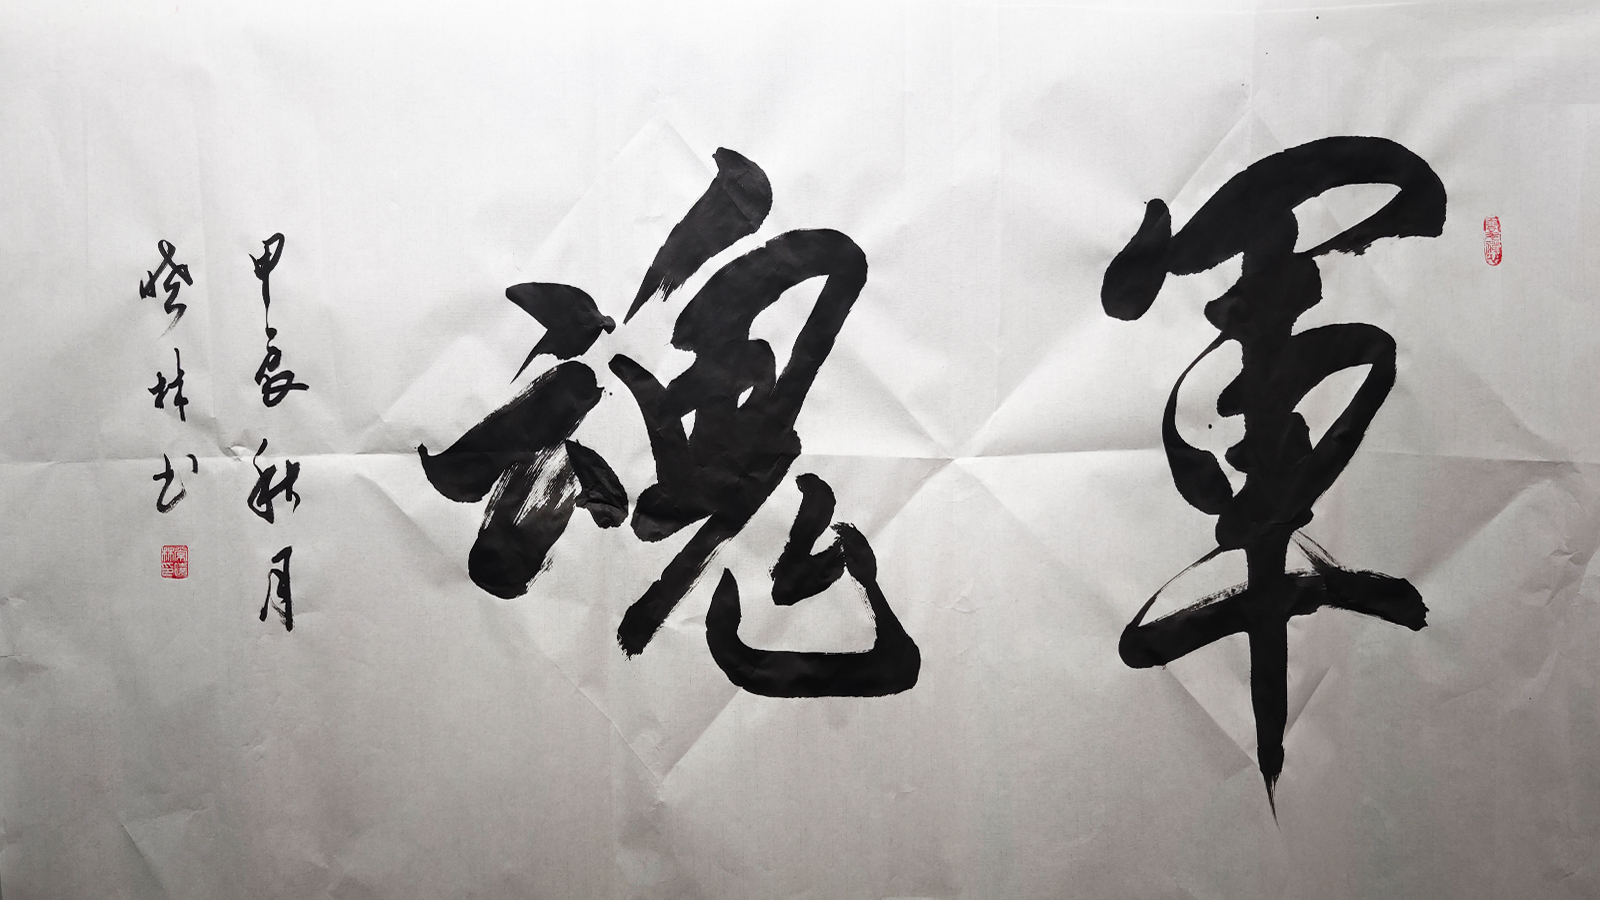 軍魂
甲辰秋月
曉林书